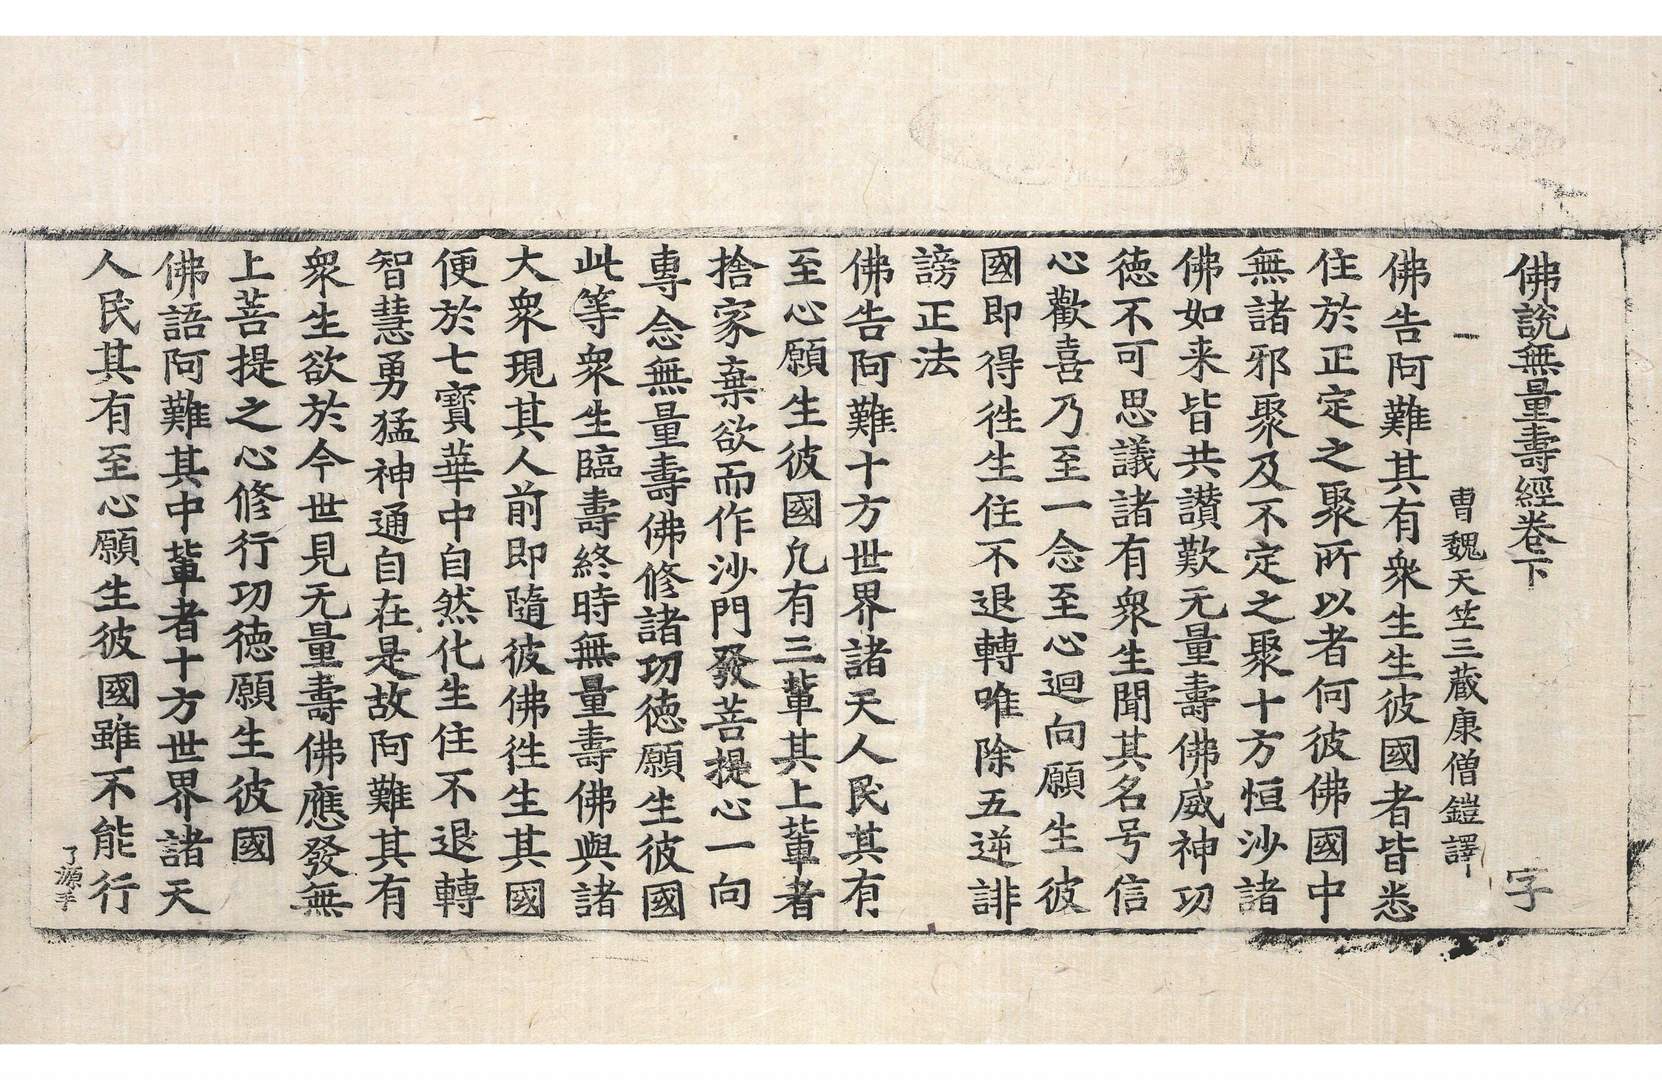 佛說無量壽經卷下 字
一 曹魏天竺三藏康僧鎧譯
佛告阿難其有衆生生彼國者皆悉
住於正定之聚所以者何彼佛國中
無諸邪聚及不定之聚十方恒沙諸
佛如来皆共讃歎无量壽佛威神功
德不可思議諸有衆生聞其名号信
心歡喜乃至一念至心迴向願生彼
國即得徃生住不退轉唯除五逆誹
謗正法
佛告阿難十方世界諸天人民其有
至心願生彼國凢有三輩其上輩者
捨家棄欲而作沙門發菩提心一向
專念無量壽佛修諸功德願生彼國
此等衆生臨壽終時無量壽佛與諸
大衆現其人前即隨彼佛徃生其國
便於七寳華中自然化生住不退轉
智慧勇猛神通自在是故阿難其有
衆生欲於今世見无量壽佛應發無
上菩提之心修行功德願生彼國
佛語阿難其中輩者十方世界諸天
人民其有至心願生彼國雖不能行
了源手